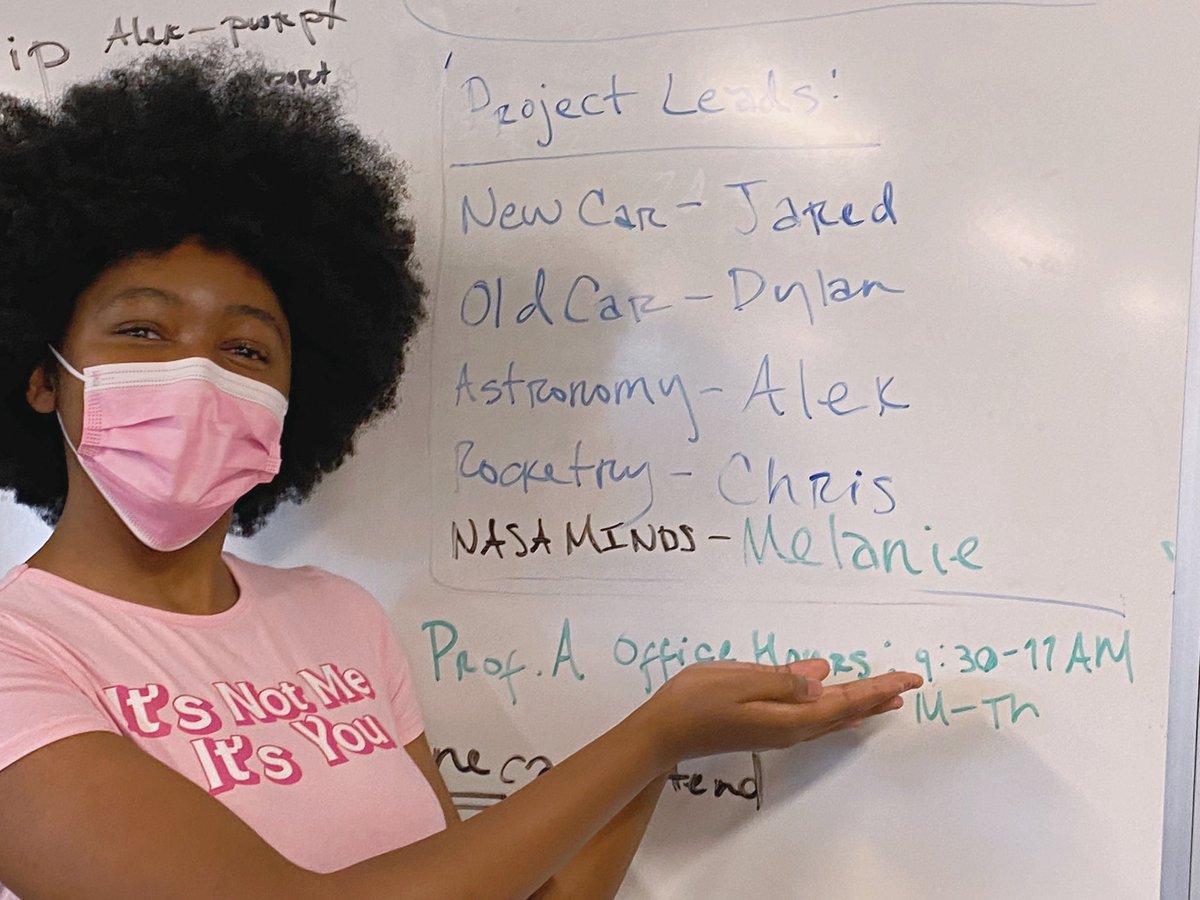 ip Alek - pwrpt
'Project Leads:
New Car - Jared
Old Car - Dylan
Astronomy - Alek
Rocketry - Chris
NASA MINDS - Melanie
Prof. A Office Hours: 9:30-11 AM
M-Th
It's Not Me
It's You